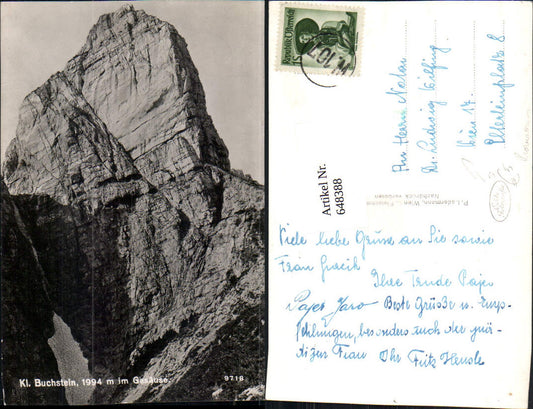 Kl. Buchstein, 1994 m im Gesäuse.
9718
Republik Österreich
Artikel Nr.
648388
P. Ledermann, Wien
Nachdruck verboten
An Herrn Notar
Dr. Ludwig Wilfling
Wien 17.
Elterleinplatz 8
Viele liebe Grüße an Sie sowie
Ihre Trude Pajer
Pajer Jaro Beste Grüße u. Emp-
fehlungen, besonders auch der gnä-
digen Frau Ihr Fritz